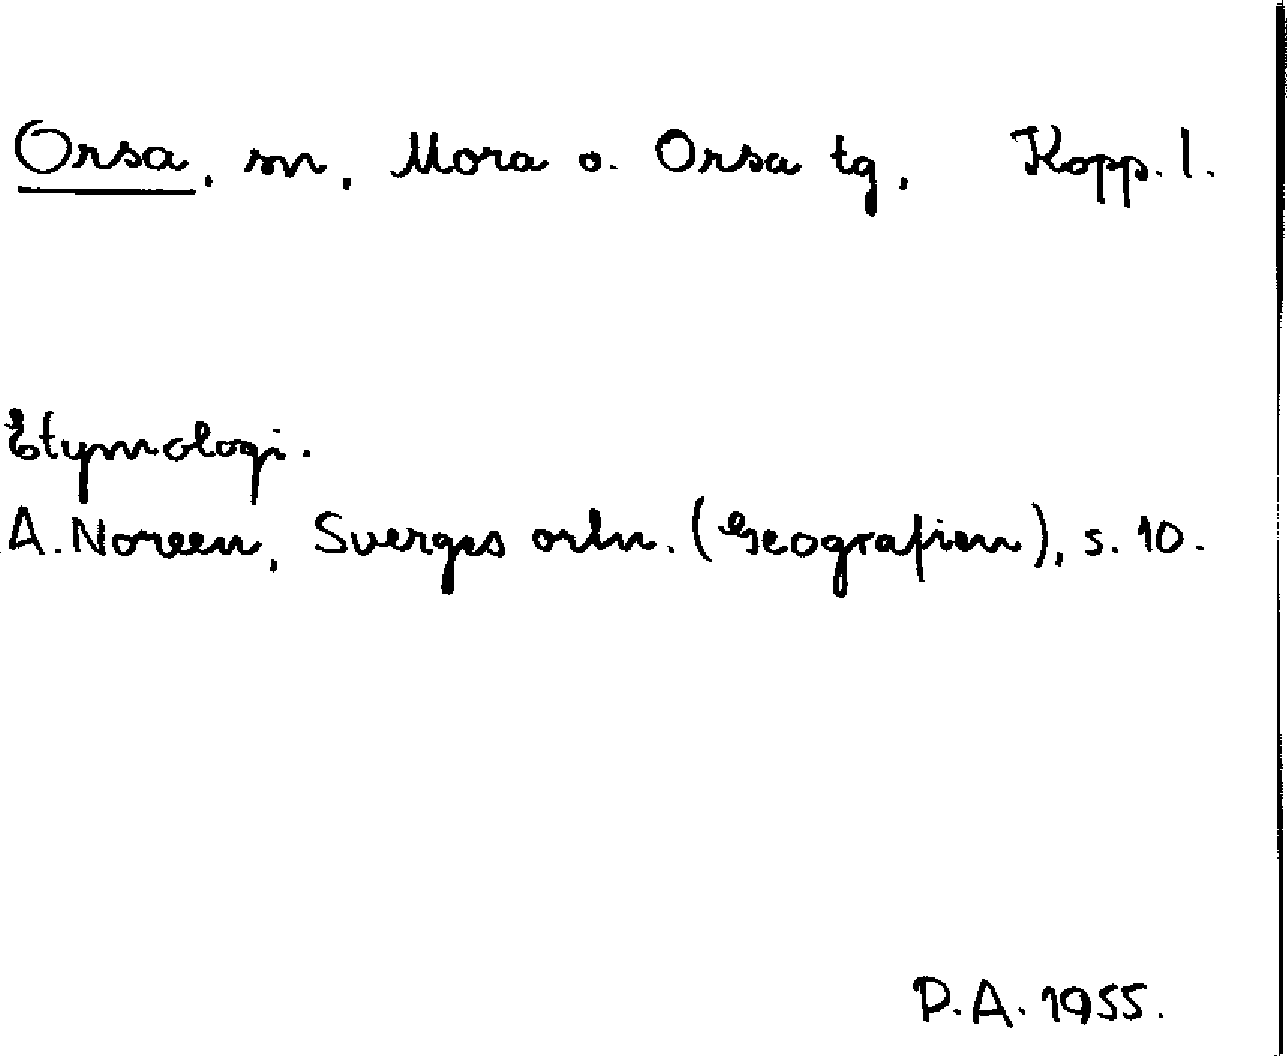 Orsa, sn, Mora o. Orsa tg, Kopp. l.
Etymologi.
A. Noreen, Sverges ortn. (Geografien), s. 10.
D.A. 1955.